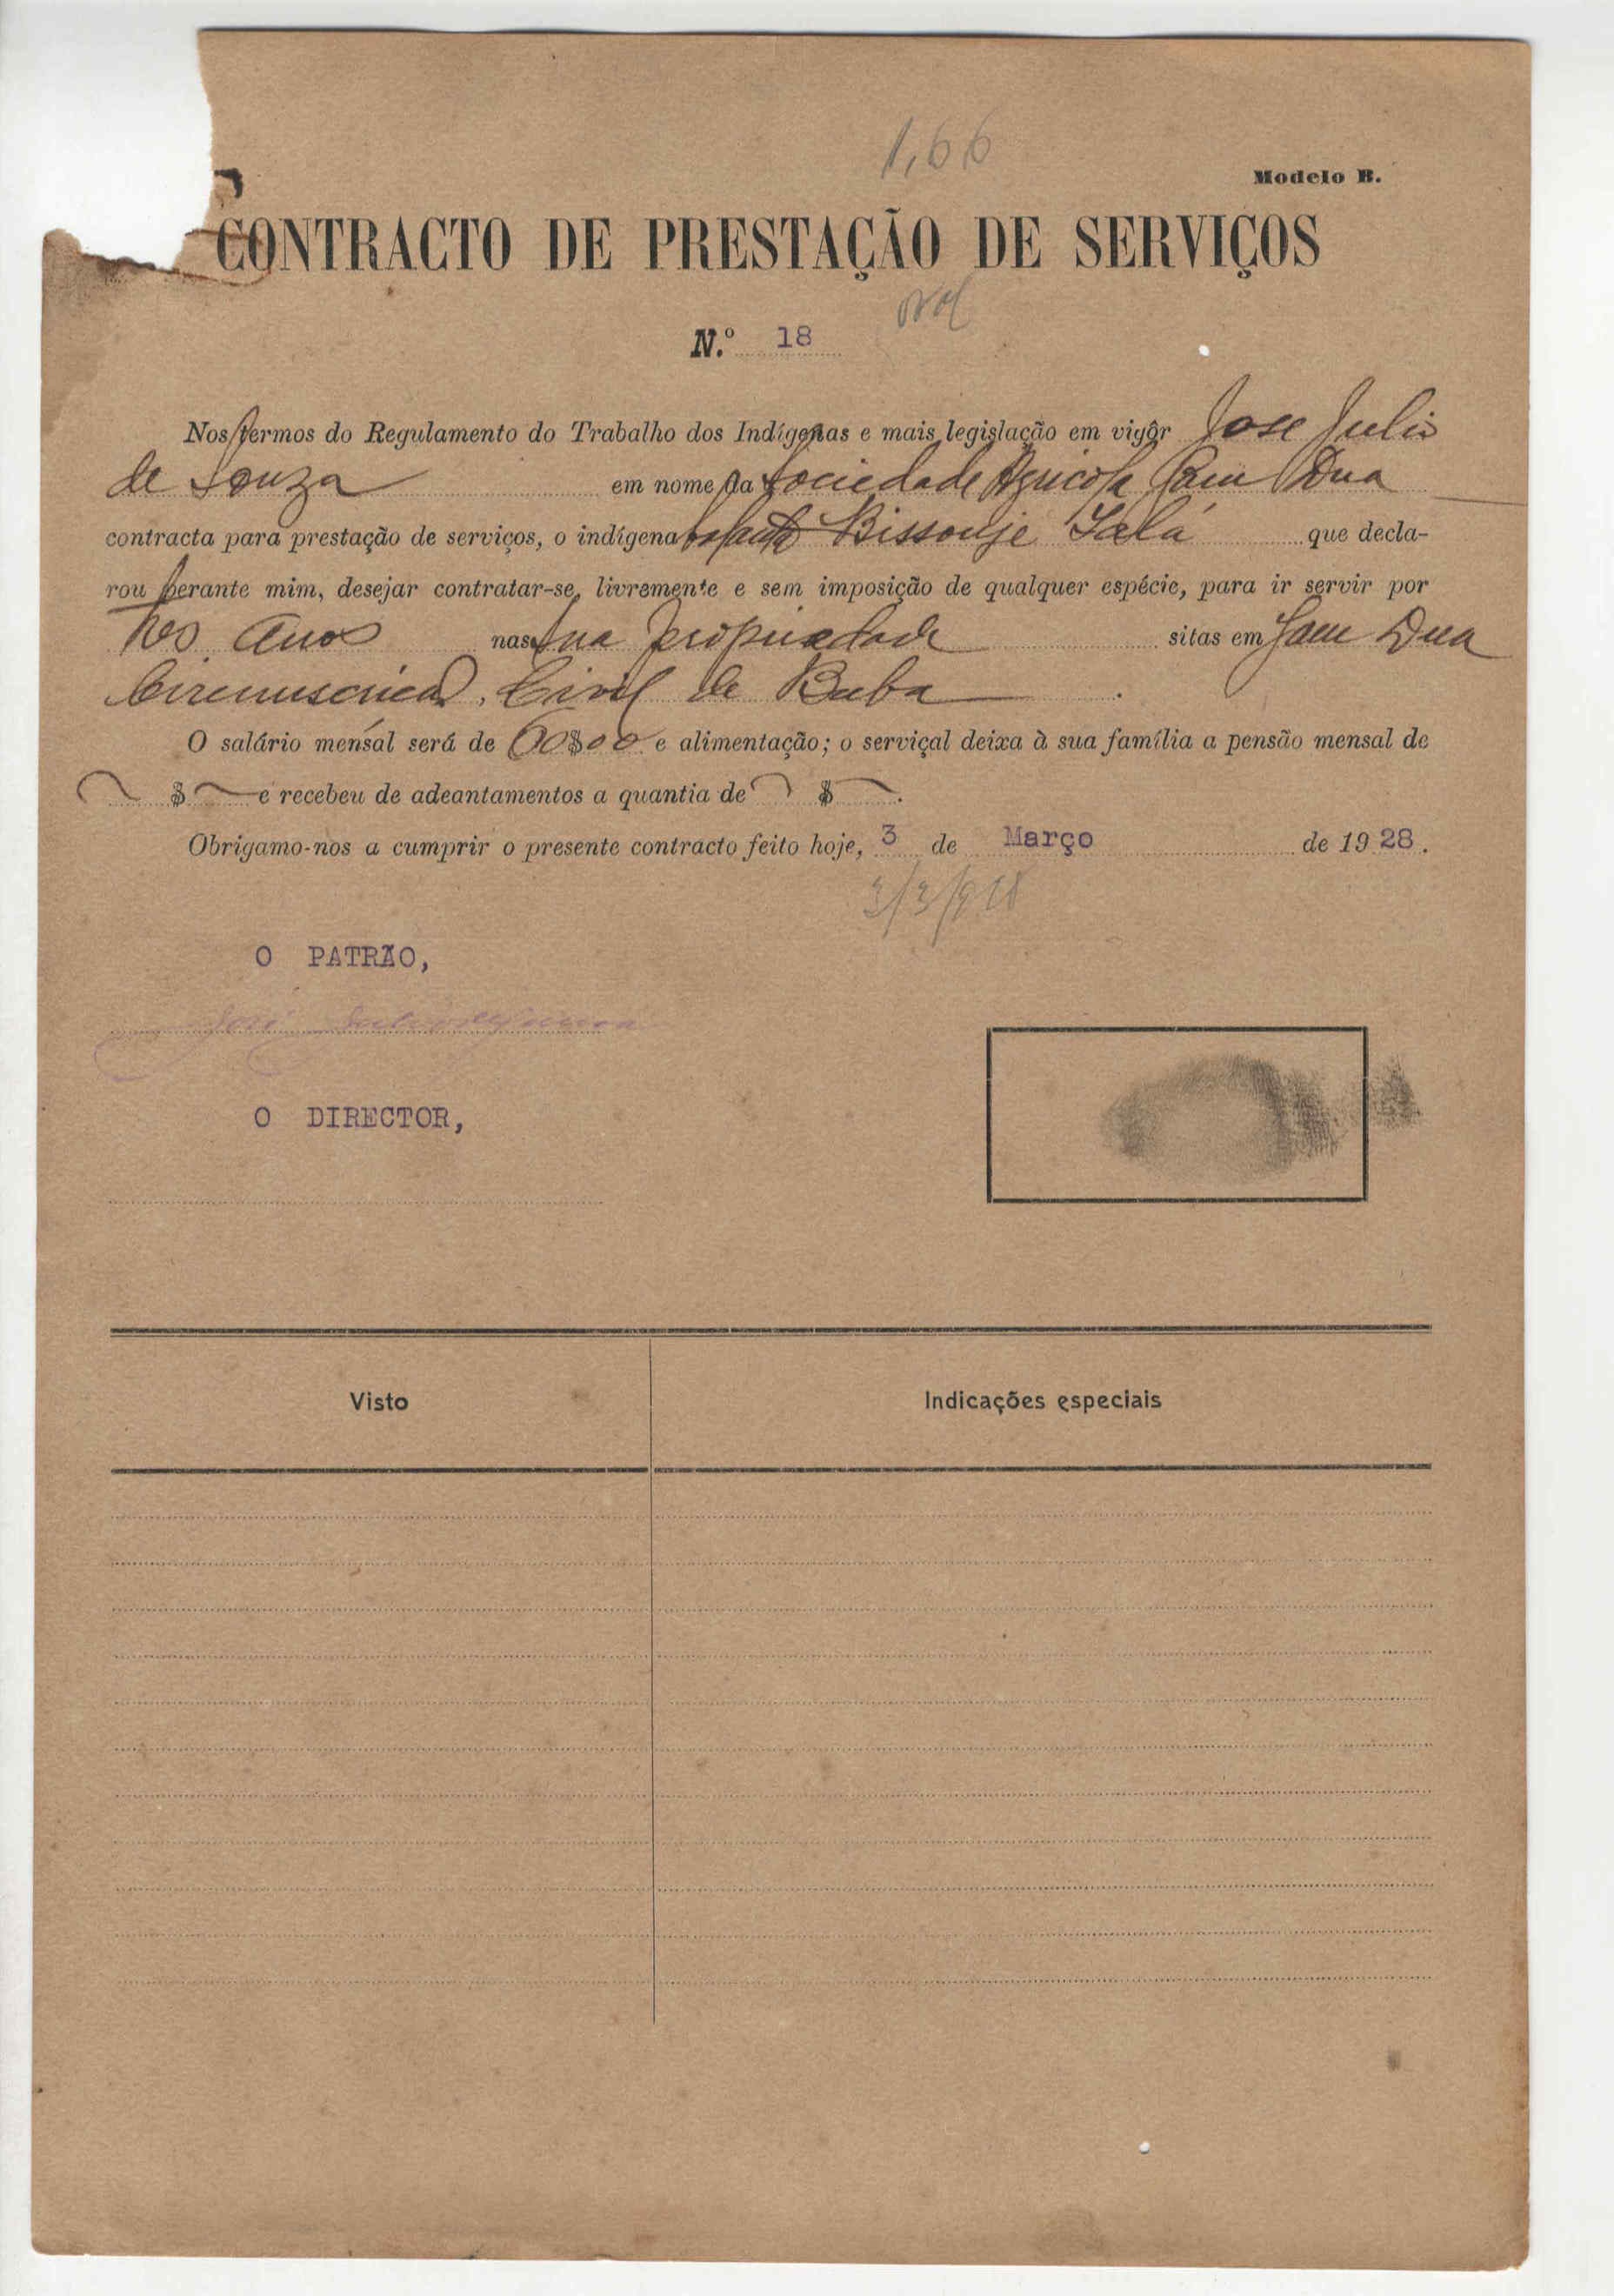 1,66
Modelo B.
CONTRACTO DE PRESTAÇÃO DE SERVIÇOS
N.º 18
Nos termos do Regulamento do Trabalho dos Indígenas e mais legislação em vigôr Jose Julio
de Souza em nome da Sociedade Agricola Gam Dua
contracta para prestação de serviços, o indígena Bissouje Ialá que decla-
rou perante mim, desejar contratar-se, livremente e sem imposição de qualquer espécie, para ir servir por
tres anos nas sua propriedade sitas em Gam Dua
Circunscrição Civil de Buba.
O salário mensal será de 60$00 e alimentação; o serviçal deixa à sua família a pensão mensal de
$ e recebeu de adeantamentos a quantia de $ .
Obrigamo-nos a cumprir o presente contracto feito hoje, 3 de Março de 1928.
3/3/928
O PATRÃO,
José Julio de Souza
O DIRECTOR,
Visto Indicações especiais